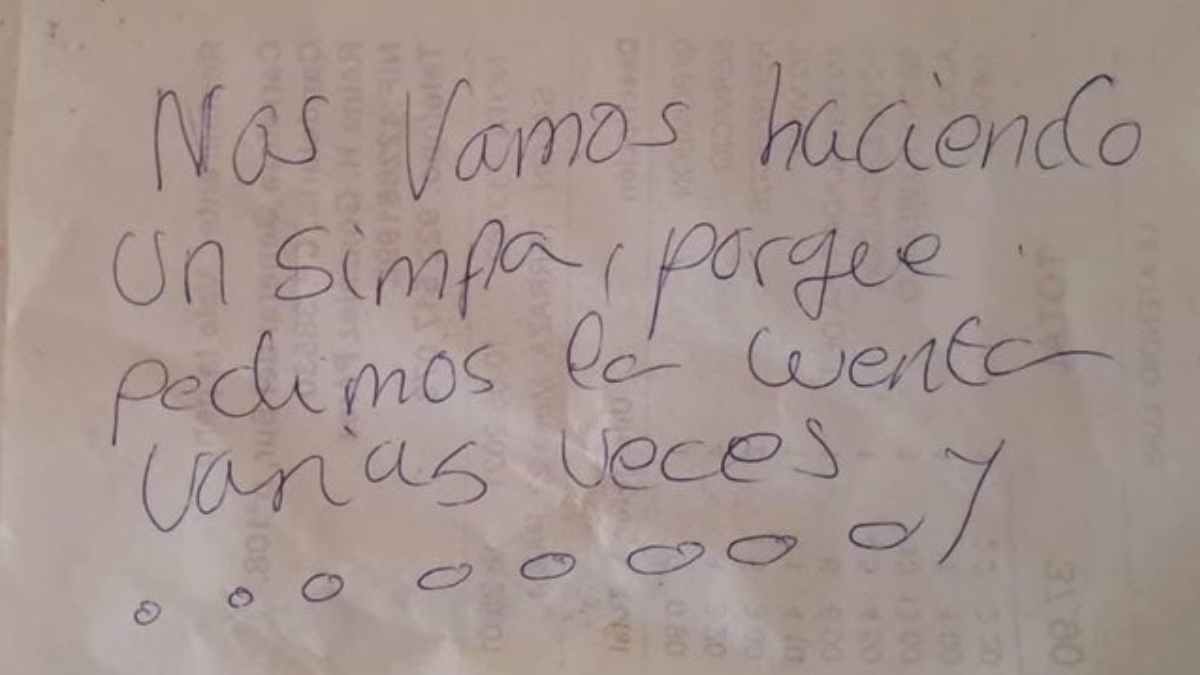 Nos Vamos haciendo
un simpa, porque
pedimos la cuenta
varias veces y
. . o o o o o o